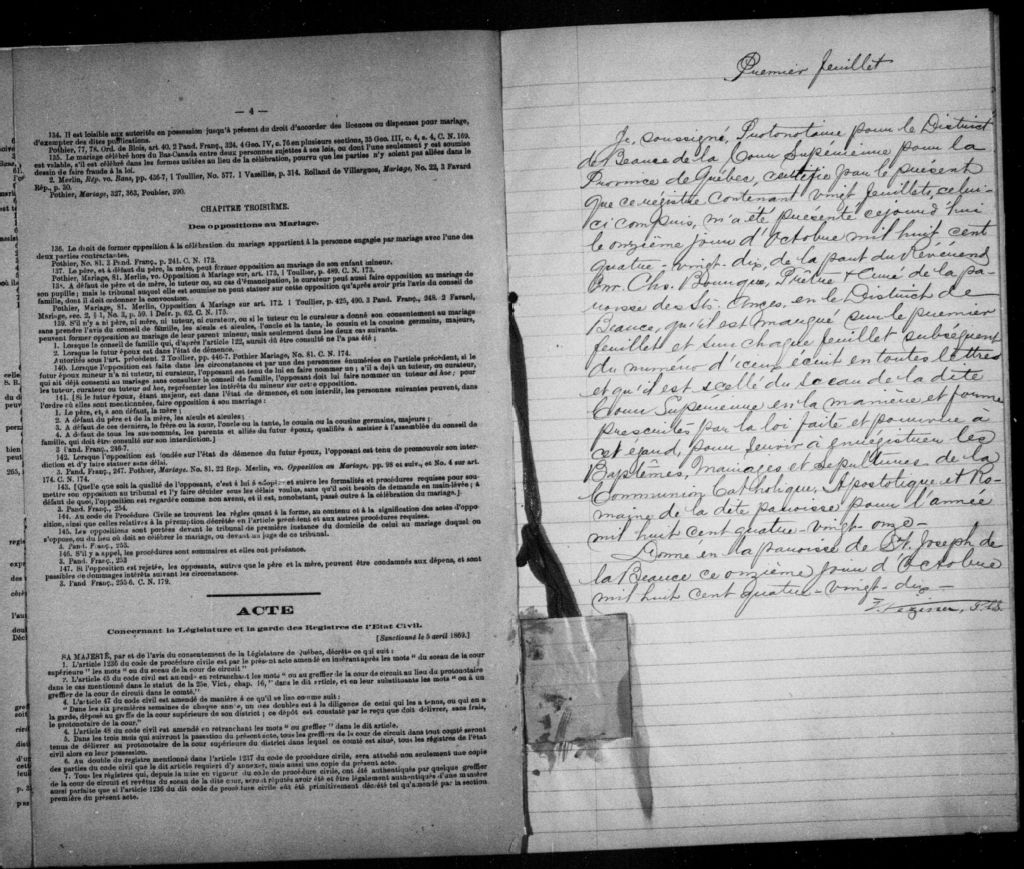 — 4 —
134. Il est loisible aux autorités en possession jusqu'à présent du droit d'accorder des licences ou dispenses pour mariage,
d'exempter des dites publications.
Pothier, 77, 78. Ord. de Blois, art. 40, 2 Pand. Franç., 324. 4 Geo. IV, c. 76 en plusieurs sections, 35 Geo. III, c. 4, s. 4, C. N. 169.
135. Le mariage célébré hors du Bas-Canada entre deux personnes sujettes à ses lois, ou dont l'une seulement y est soumise
est valable, s'il est célébré dans les formes usitées au lieu de la célébration, pourvu que les parties n'y soient pas allées dans le
dessin de faire fraude à la loi.
2. Merlin, Rép. vo. Bans, pp. 436-7, 1 Toullier, No. 577. 1 Vazeilles, p. 314. Rolland de Villargues, Mariage, No. 22, 3 Favard
Rép., p. 30.
Pothier, Mariage, 327, 363, Poubler, 390.
CHAPITRE TROISIÈME.
Des oppositions au Mariage.
136. Le droit de former opposition à la célébration du mariage appartient à la personne engagée par mariage avec l'une des
deux parties contractantes.
Pothier, No. 81. 3 Pand. Franç., p. 241. C. N. 172.
137. Le père, et à défaut du père, la mère, peut former opposition au mariage de son enfant mineur.
Pothier, Mariage, 81. Merlin, vo. Opposition à Mariage, sur art. 173, 1 Toullier, p. 489. C. N. 173.
138. A défaut de père et de mère, le tuteur ou, au cas d'émancipation, le curateur peut aussi faire opposition au mariage de
son pupille; mais le tribunal auquel elle est soumise ne peut statuer sur cette opposition qu'après avoir pris l'avis du conseil de
famille, dont il doit ordonner la convocation.
Pothier, Mariage, 81. Merlin, Opposition à Mariage sur art. 172. 1 Toullier, p. 425, 490. 3 Pand. Franç., 248. 2 Favard,
Mariage, sec. 2, § 1, No. 3, p. 59. 1 Delv. p. 62. C. N. 175.
139. S'il n'y a ni père, ni mère, ni tuteur, ni curateur, ou si le tuteur ou le curateur a donné son consentement au mariage
sans prendre l'avis du conseil de famille, les aïeuls et aïeules, l'oncle et la tante, le cousin et la cousine germains, majeurs,
peuvent former opposition au mariage de leur parent mineur, mais seulement dans les deux cas suivants.
1. Lorsque le conseil de famille qui, d'après l'article 122, aurait dû être consulté ne l'a pas été;
2. Lorsque le futur époux est dans l'état de démence.
Autorités sous l'art. précédent. 2 Toullier, pp. 446-7. Pothier Mariage, No. 81. C. N. 174.
140. Lorsque l'opposition est faite dans les circonstances et par une des personnes énumérées en l'article précédent, si le
futur époux mineur n'a ni tuteur, ni curateur, l'opposant est tenu de lui en faire nommer un; s'il a déjà un tuteur, ou curateur,
qui ait déjà consenti au mariage sans consulter le conseil de famille, l'opposant doit lui faire nommer un tuteur ad hoc; pour
les tuteur, curateur ou tuteur ad hoc, représenter les intérêts du mineur sur cette opposition.
141. [Si le futur époux, étant majeur, est dans l'état de démence, et non interdit, les personnes suivantes peuvent, dans
l'ordre où elles sont mentionnées, faire opposition à son mariage:
1. Le père, et, à son défaut, la mère;
2. A défaut du père et de la mère, les aïeuls et aïeules;
3. A défaut de ces derniers, le frère ou la sœur, l'oncle ou la tante, le cousin ou la cousine germains, majeurs;
4. A défaut de tous les sus-nommés, les parents et alliés du futur époux, qualifiés à assister à l'assemblée du conseil de
famille, qui doit être consulté sur son interdiction.]
3 Pand. Franç., 246-7.
142. Lorsque l'opposition est fondée sur l'état de démence du futur époux, l'opposant est tenu de promouvoir son inter-
diction et d'y faire statuer sans délai.
3. Pand. Franç., 247. Pothier, Mariage. No. 81. 22 Rep. Merlin, vo. Opposition au Mariage, pp. 98 et suiv., et No. 4 sur art.
174. C. N. 174.
143. [Quelle que soit la qualité de l'opposant, c'est à lui à adopter et suivre les formalités et procédures requises pour sou-
mettre son opposition au tribunal et l'y faire décider sous les délais voulus, sans qu'il soit besoin de demande en main-levée; à
défaut de quoi, l'opposition est regardée comme non avenu, et il est, nonobstant, passé outre à la célébration du mariage.]
3. Pand. Franç., 254.
144. Au code de Procédure Civile se trouvent les règles quant à la forme, au contenu et à la signification des actes d'oppo-
sition, ainsi que celles relatives à la péremption décrétée en l'article précédent et aux autres procédures requises.
145. Les oppositions sont portées devant le tribunal de première instance du domicile de celui au mariage duquel on
s'oppose, ou du lieu où doit se célébrer le mariage, ou devant un juge de ce tribunal.
3. Pand. Franç., 253.
146. S'il y a appel, les procédures sont sommaires et elles ont préséance.
3. Pand. Franç., 253
147. Si l'opposition est rejetée, les opposants, autres que le père et la mère, peuvent être condamnés aux dépens, et sont
passibles de dommages intérêts suivant les circonstances.
3. Pand Franç. 255-6. C. N. 179.
ACTE
Concernant la Législature et la garde des Registres de l'Etat Civil.
[Sanctionné le 5 avril 1869.]
SA MAJESTÉ, par et de l'avis du consentement de la Législature de Québec, décrète ce qui suit:
1. L'article 1236 du code de procédure civile est par le présent acte amendé en insérant après les mots "du sceau de la cour
supérieure" les mots "ou du sceau de la cour de circuit"
2. L'article 45 du code civil est amendé en retranchant les mots "ou au greffier de la cour de circuit au lieu du protonotaire
dans le cas mentionné dans le statut de la 25e. Vict., chap. 16," dans le dit article, et en leur substituant les mots "ou à un
greffier de la cour de circuit dans le comté."
4. L'article 47 du code civil est amendé de manière à ce qu'il se lise comme suit:
"Dans les six premières semaines de chaque année, un des doubles est à la diligence de celui qui les a tenus, ou qui en a
la garde, déposé au greffe de la cour supérieure de son district; ce dépôt est constaté par le reçu que doit délivrer, sans frais,
le protonotaire de la cour."
4. L'article 48 du code civil est amendé en retranchant les mots "ou greffier" dans le dit article.
5. Dans les trois mois qui suivront la passation du présent acte, tous les greffiers de la cour de circuit dans tout comté seront
tenus de délivrer au protonotaire de la cour supérieure du district dans lequel ce comté est situé, tous les registres de l'état
civil alors en leur possession.
6. Au double du registre mentionné dans l'article 1237 du code de procédure civile, sera attaché non seulement une copie
des parties du code civil que le dit article requiert d'y annexer, mais aussi une copie du présent acte.
7. Tous les registres qui, depuis la mise en vigueur du code de procédure civile, ont été authentiqués par quelque greffier
de la cour de circuit et revêtus du sceau de la dite cour, seront réputés avoir été et être légalement authentiqués d'une manière
aussi parfaite que si l'article 1236 du dit code de procédure civile eût été primitivement décrété tel qu'amendé par la section
première du présent acte.
Premier feuillet
Je, soussigné, Protonotaire pour le District
de Beauce de la Cour Supérieure pour la
Province de Québec, certifie par le présent
que ce régistre contenant vingt feuillets, celui-
ci compris, m'a été présenté cejourd'hui
le onzième jour d'Octobre mil huit cent
quatre-vingt-dix, de la part du Révérend
Mr. Chs. Bourque, Prêtre & Curé de la pa-
roisse des Sts. Anges, en le District de
Beauce, qu'il est marqué sur le premier
feuillet et sur chaque feuillet subséquent
du numéro d'iceux écrit en toutes lettres
et qu'il est scellé du sceau de la dite
Cour Supérieure en la manière et forme
prescrites par la loi faite et pourvue à
cet égard, pour servir à enregistrer les
Baptêmes, Mariages et sépultures de la
Communion Catholique, Apostolique et Ro-
maine de la dite paroisse pour l'année
mil huit cent quatre-vingt-onze-
Donné en la paroisse de St. Joseph de
la Beauce ce onzième jour d'Octobre
mil huit cent quatre-vingt-dix-